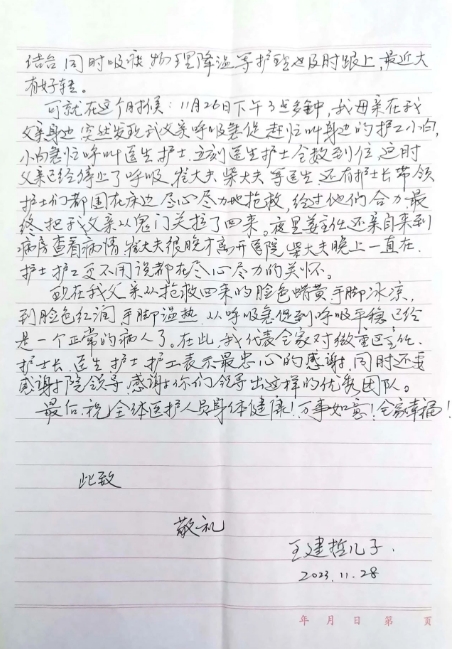 结合同时吸痰物理降温等护理也及时跟上,最近大
有好转。
可就在这个时候:11月26日下午3点多钟,我母亲在我
父亲身边突然发现我父亲呼吸急促赶忙叫身边的护工小白,
小白急忙呼叫医生护士,立刻医生护士全数到位,这时
父亲已经停止了呼吸,大夫,柴大夫等医生,还有护士长带领
护士们都围在床边尽心尽力地抢救,经过他们合力最
终把我父亲从鬼门关拉了回来。夜里姜主任还亲自来到
病房查看病情,大夫很晚才离开医院,柴大夫晚上一直在,
护士护工更不用说都在尽心尽力的关怀。
现在我父亲从抢救回来的脸色蜡黄手脚冰凉,
到脸色红润手脚温热,从呼吸急促到呼吸平稳已经
是一个正常的病人了。在此我代表全家对主任、
护士长、医生护士护工表示最忠心的感谢,同时还要
感谢院领导,感谢你们领导出这样的优秀团队。
最后祝全体医护人员身体健康!万事如意!全家幸福!
此致
敬礼
王建哲儿子.
2023.11.28
年 月 日 第 页